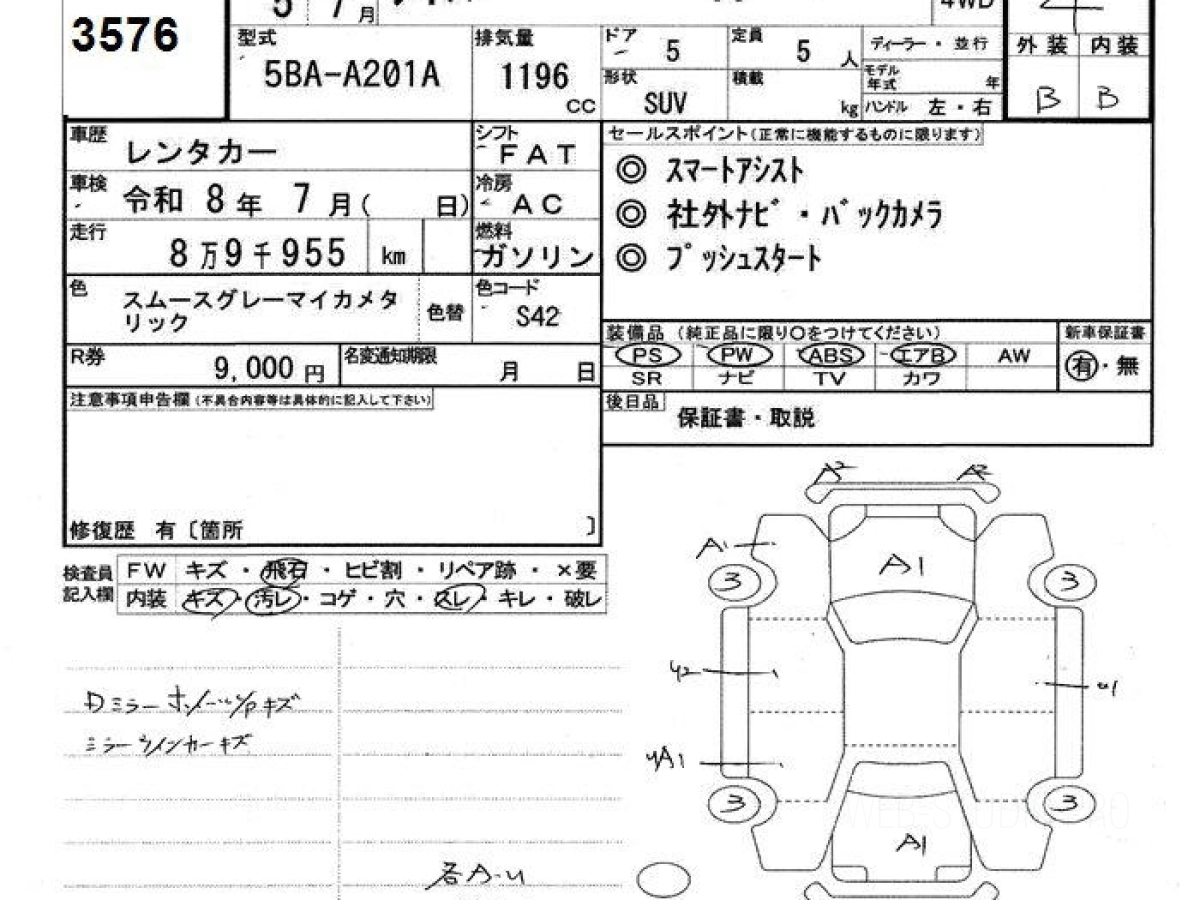 3576
5 7月 4WD
型式 5BA-A201A
排気量 1196 CC
ドア 5
定員 5 人
ディーラー・並行
形状 SUV
積載 kg
モデル年式 年
ハンドル 左・右
外装 内装
B B
車歴 レンタカー
シフト FAT
セールスポイント(正常に機能するものに限ります)
◎ スマートアシスト
車検 令和 8年 7月( 日)
冷房 AC
◎ 社外ナビ・バックカメラ
走行 8万9千955 km
燃料 ガソリン
◎ プッシュスタート
色 スムースグレーマイカメタリック
色替
色コード S42
装備品 (純正品に限り○をつけてください)
新車保証書
PS PW ABS エアB AW
有・無
SR ナビ TV カワ
R券 9,000 円
名変通知期限 月 日
注意事項申告欄(不具合内容等は具体的に記入して下さい)
後日品 保証書・取説
修復歴 有〔箇所 〕
検査員記入欄
FW キズ・飛石・ヒビ割・リペア跡・×要
内装 キズ・汚レ・コゲ・穴・スレ・キレ・破レ
A2 A2
A1
A1
3 3
U2
U1
Dミラー
キズ
ミラーウインカーキズ
UA1
3 3
A1
各A-U